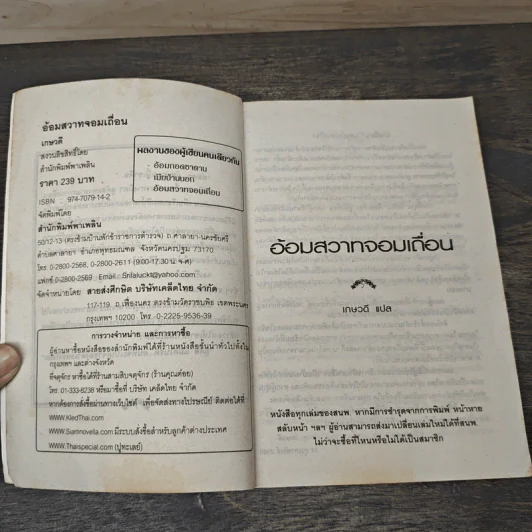 อ้อมสวาทจอมเถื่อน
เกษวดี
สงวนลิขสิทธิ์โดย
สำนักพิมพ์พาเพลิน
ราคา 239 บาท
ISBN : 974-7079-14-2
จัดพิมพ์โดย
สำนักพิมพ์พาเพลิน
50/12-13 (ตรงข้ามบ้านพักข้าราชการตำรวจ) ถ.ศาลายา-นครชัยศรี
ตำบลศาลายา อำเภอพุทธมณฑล จังหวัดนครปฐม 73170
โทร. 0-2800-2568, 0-2800-2611 (9.00-17.30 น. จ-ศ)
แฟกซ์ 0-2800-2569 Email : Srifaluckt@yahoo.com
จัดจำหน่ายโดย สายส่งศึกษิต บริษัทเคล็ดไทย จำกัด
117-119 ถ.เฟื่องนคร ตรงข้ามวัดราชบพิธ เขตพระนคร
กรุงเทพฯ 10200 โทร. 0-2225-9536-39
ผลงานของผู้เขียนคนเดียวกัน
อ้อมกอดซาตาน
เมียบ้านนอก
อ้อมสวาทจอมเถื่อน
การวางจำหน่าย และการหาซื้อ
ผู้อ่านหาซื้อหนังสือของสำนักพิมพ์ได้ที่ร้านหนังสือชั้นนำทั่วไปทั้งใน
กรุงเทพฯ และต่างจังหวัด
ที่จตุจักร หาซื้อได้ที่ร้านสามสิบจตุจักร (ร้านคุณต๋อย)
โทร. 01-333-8238 หรือมาซื้อที่ บริษัท เคล็ดไทย จำกัด
หากต้องการสั่งซื้อผ่านทางเว็บไซต์ เพื่อจัดส่งทางไปรษณีย์ ติดต่อได้ที่
WWW.KledThai.com
WWW.Siamnovella.com มีระบบสั่งซื้อสำหรับลูกค้าต่างประเทศ
WWW.Thaispecial.com (ปูทะเลย์)
อ้อมสวาทจอมเถื่อน
เกษวดี แปล
หนังสือทุกเล่มของสนพ. หากมีการชำรุดจากการพิมพ์ หน้าหาย
สลับหน้า ฯลฯ ผู้อ่านสามารถส่งมาเปลี่ยนเล่มใหม่ได้ที่สนพ.
ไม่ว่าจะซื้อที่ไหนหรือไม่ได้เป็นสมาชิก